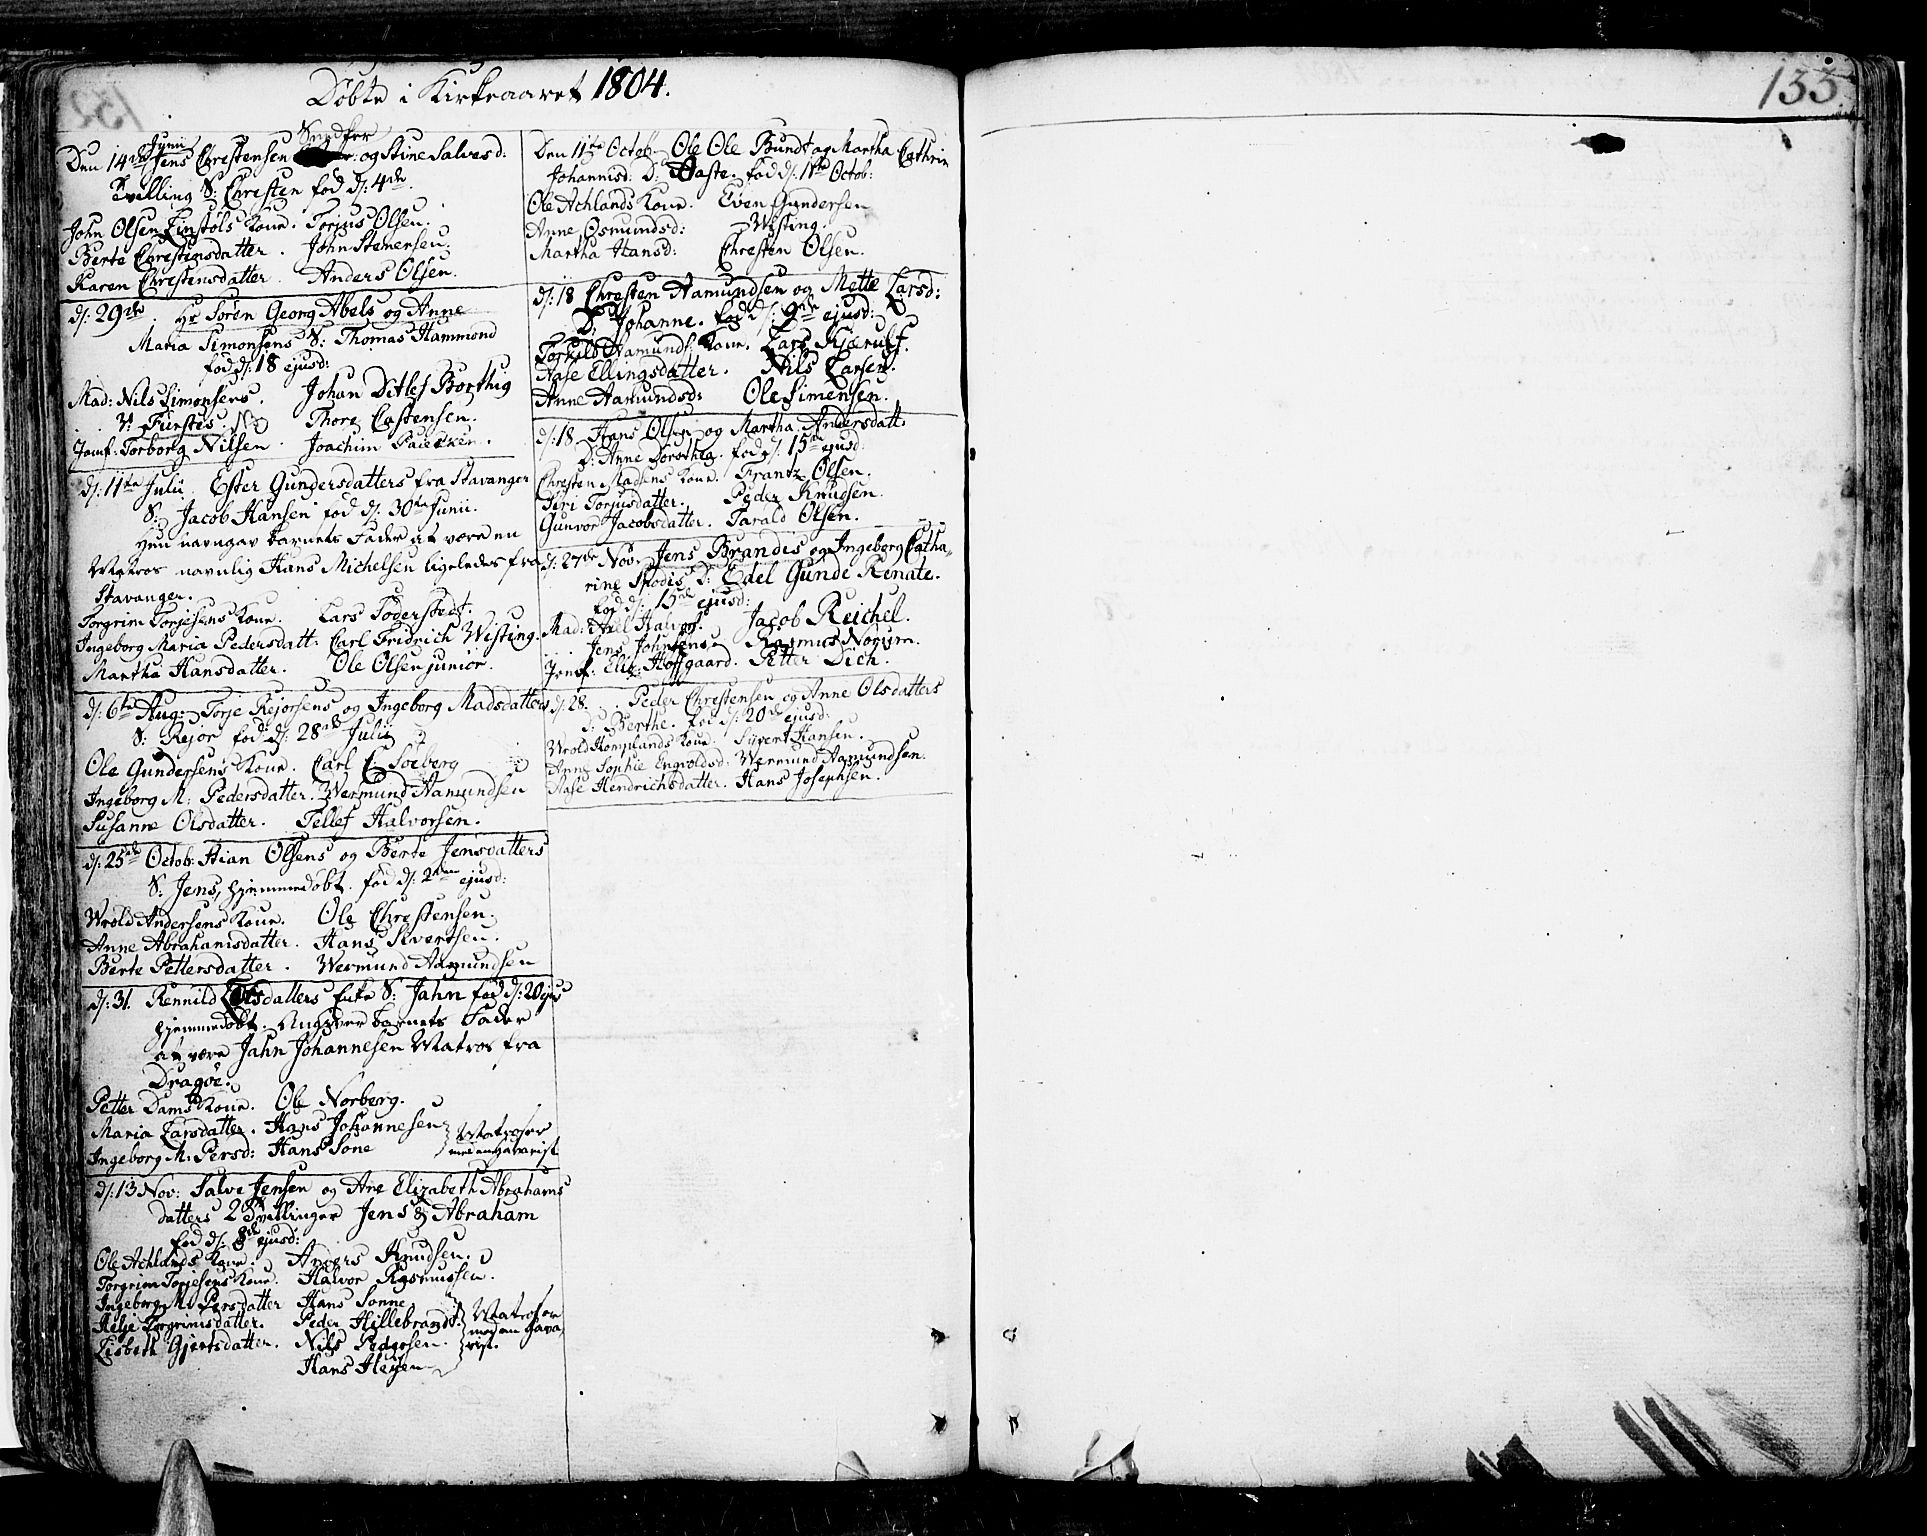 Døbte i Kirkeaaret 1804.
133
Snedker
Junii
Den 14de Jens Christensen og Stine Salvesd:
Tvilling S: Christen fød d: 4de.
John Olsen Einstøls Kone. Torjus Olsen.
Berte Christensdatter. John Stenersen.
Karen Christensdatter. Anders Olsen.
d: 29de. Hr Søren Georg Abels og Anne
Maria Simonsens S: Thomas Hammond
fød d: 18 ejusd:
Mad: Nils Simonsens. Johan Ditlef Borthig
Thore Castensen.
Jomf: Torborg Nilsen. Joachim
d: 11te Julii. Ester Gundersdatters fra Stavanger
S: Jacob Hansen fød d: 30te Junii.
Hun navngav barnets Fader at være en
Matros navnlig Hans Michelsen ligeledes fra
Stavanger.
Torgrim Torjesens Kone. Lars Søderstedt.
Ingeborg Maria Pedersdatt: Carl Fridrich Wisting.
Martha Hansdatter. Ole Olsen junior.
d: 6te Aug: Torje Rejorsens og Ingeborg Madsdatters
S: Rejor fød d: 28de Julii
Ole Gundersens Kone. Carl C Soeberg
Ingeborg M: Pedersdatter. Wermund Aamundsen
Susanne Olsdatter. Tellef Halvorsen.
d: 25de Octob: Stian Olsens og Berte Jensdatters
S: Jens, hjemmedøbt. fød d: 2den ejusd:
Wrold Andersens Kone. Ole Christensen.
Anne Abrahamsdatter. Hans Sivertsen.
Berte Pettersdatter. Wermund Aamundsen
d: 31. Rennild Olsdatters Enke S: Jahn fød d: 20 ejus
hjemmedøbt. Angiver barnets Fader
at være Jahn Johannesen Matros fra
Dragøe.
Petter Dams Kone. Ole Norberg.
Maria Larsdatter. Hans Johannesen
Ingeborg M: Persd: Hans Sone
Matroser
med en Havarist
d: 13 Nov: Salve Jensen og Ane Elizabeth Abrahams
datters 2 Tvillinger Jens & Abraham
fød d: 8de ejusd:
Ole Achlands Kone. Anders Knudsen.
Torgrim Torjesens Kone. Halvor Rasmussen.
Ingeborg M: Persdatter Hans Sonne
Helje Torgrimsdatter. Peder Hillebrandt.
Lisbeth Gjertsdatter. Nils Pedersen.
Hans Heyen
Matroser
med en Hava,
rist.
Den 11te Octob. Ole Ole Bundt og Martha Cathrin
Johannisd: D: Aaste. fød d: 1te Octob:
Ole Achlands Kone. Even Gundersen
Anne Osmundsd: Wisting.
Martha Hansd: Christen Olsen.
d: 18 Christen Aamundsen og Mette Larsd:
D: Johanne. fød d: 9de ejusd:
Torkild Aamunds: Kone. Lars Kjærulf.
Aase Ellingsdatter. Nils Larsen.
Anne Aamundsd: Ole Simensen.
d: 18. Hans Olsen og Martha Andersdatt.
D: Anne Dorothea. fød d: 15de ejusd.
Christen Madsens Kone. Frantz Olsen.
Siri Torjusdatter. Peder Knudsen.
Gunvor Jacobsdatter. Tarald Olsen.
d: 27de Nov. Jens Brandis og Ingeborg Catha,
rine D: Edel Gunde Renate.
fød d: 15de ejusd:
Mad: Axel Halvors. Jacob Reichel.
Jens Johnsens Rasmus Norum.
Jomf: Eliz: Hoffgaard. Petter Dich.
d: 28. Peder Christensen og Anne Olsdatters
D: Berthe. fød d: 20de ejusd:
Wrold Komplands Kone. Sivert Hansen.
Anne Sophie Engvoldsd: Wermund Aamundsen.
Aase Hendrichsdatter. Hans Josephsen.